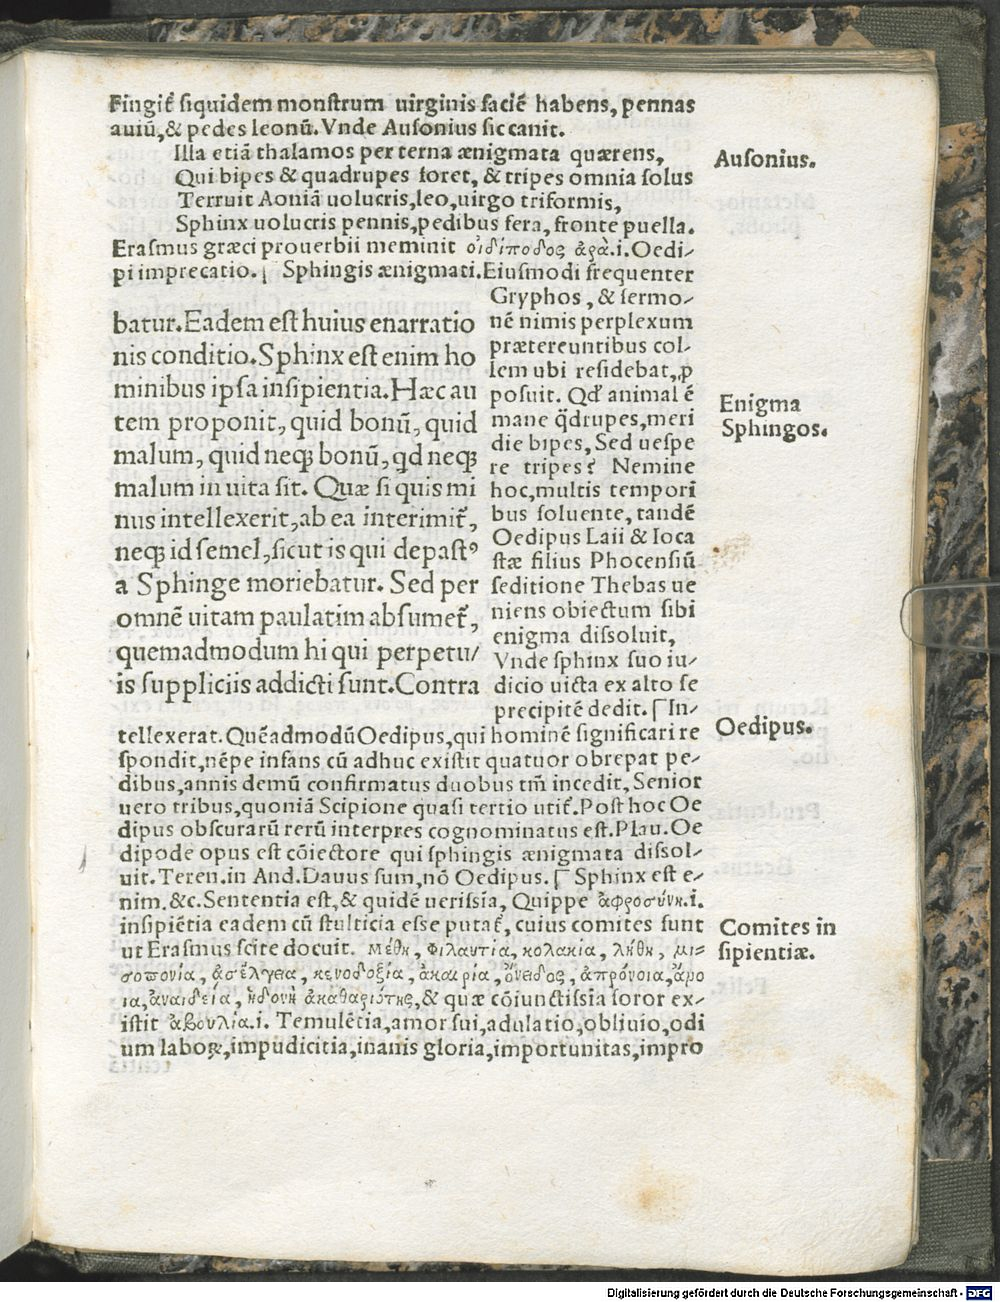 Fingit᷑ siquidem monstrum uirginis faciē habens, pennas
auiū, & pedes leonū. Vnde Ausonius sic canit.
Illa etiā thalamos per terna ænigmata quærens,
Qui bipes & quadrupes foret, & tripes omnia solus
Terruit Aoniā uolucris, leo, uirgo triformis,
Sphinx uolucris pennis, pedibus fera, fronte puella.
Erasmus græci prouerbii meminit οἰδίποδος ἀρὰ .i. Oedi-
pi imprecatio. Sphingis ænigmati. Eiusmodi frequenter
Ausonius.
batur. Eadem est huius enarratio
nis conditio. Sphinx est enim ho
minibus ipsa insipientia. Hæc au
tem proponit, quid bonū, quid
malum, quid neqꝫ bonū, qd neqꝫ
malum in uita sit. Quæ si quis mi
nus intellexerit, ab ea interimit᷑,
neqꝫ id semel, sicut is qui depastꝰ
a Sphinge moriebatur. Sed per
omnē uitam paulatim absumet᷑,
quemadmodum hi qui perpetu/
is suppliciis addicti sunt. Contra
Gryphos, & sermo-
nē nimis perplexum
prætereuntibus col-
lem ubi residebat, ꝓ
posuit. Qđ animal ē
mane q̈drupes, meri
die bipes, Sed uespe
re tripes? Nemine
hoc, multis tempori
bus soluente, tandē
Oedipus Laii & Ioca
stæ filius Phocensiū
seditione Thebas ue
niens obiectum sibi
enigma dissoluit,
Vnde sphinx suo iu-
dicio uicta ex alto se
precipitē dedit. In-
Enigma
Sphingos.
tellexerat. Quēadmodū Oedipus, qui hominē significari re
spondit, nēpe infans cū adhuc existit quatuor obrepat pe-
dibus, annis demū confirmatus duobus tm̄ incedit, Senior
uero tribus, quoniā Scipione quasi tertio utit᷑. Post hoc Oe
dipus obscurarū rerū interpres cognominatus est. Plau. Oe
dipode opus est cōiectore qui sphingis ænigmata dissol-
uit. Teren. in And. Dauus sum, nō Oedipus. Sphinx est e-
nim. &c. Sententia est, & quidē uerissīa, Quippe ἀφροσύνη .i.
insipiētia eadem cū stulticia esse putat᷑, cuius comites sunt
ut Erasmus scite docuit. μέθη, φιλαυτία, κολακία, λήθη, μι=
σοπονία, ἀσέλγεια, κενοδοξία, ἀκαιρία, ὄνειδος, ἀπρόνοια, ἄμο
ια, ἀναιδεία, ἡδονὴ ἀκαθαριότης, & quæ cōiunctissīa soror ex-
istit ἀβουλία .i. Temulētia, amor sui, adulatio, obliuio, odi
um laboꝝ, impudicitia, inanis gloria, importunitas, impro
Oedipus.
Comites in
sipientiæ.
Digitalisierung gefördert durch die Deutsche Forschungsgemeinschaft - DFG